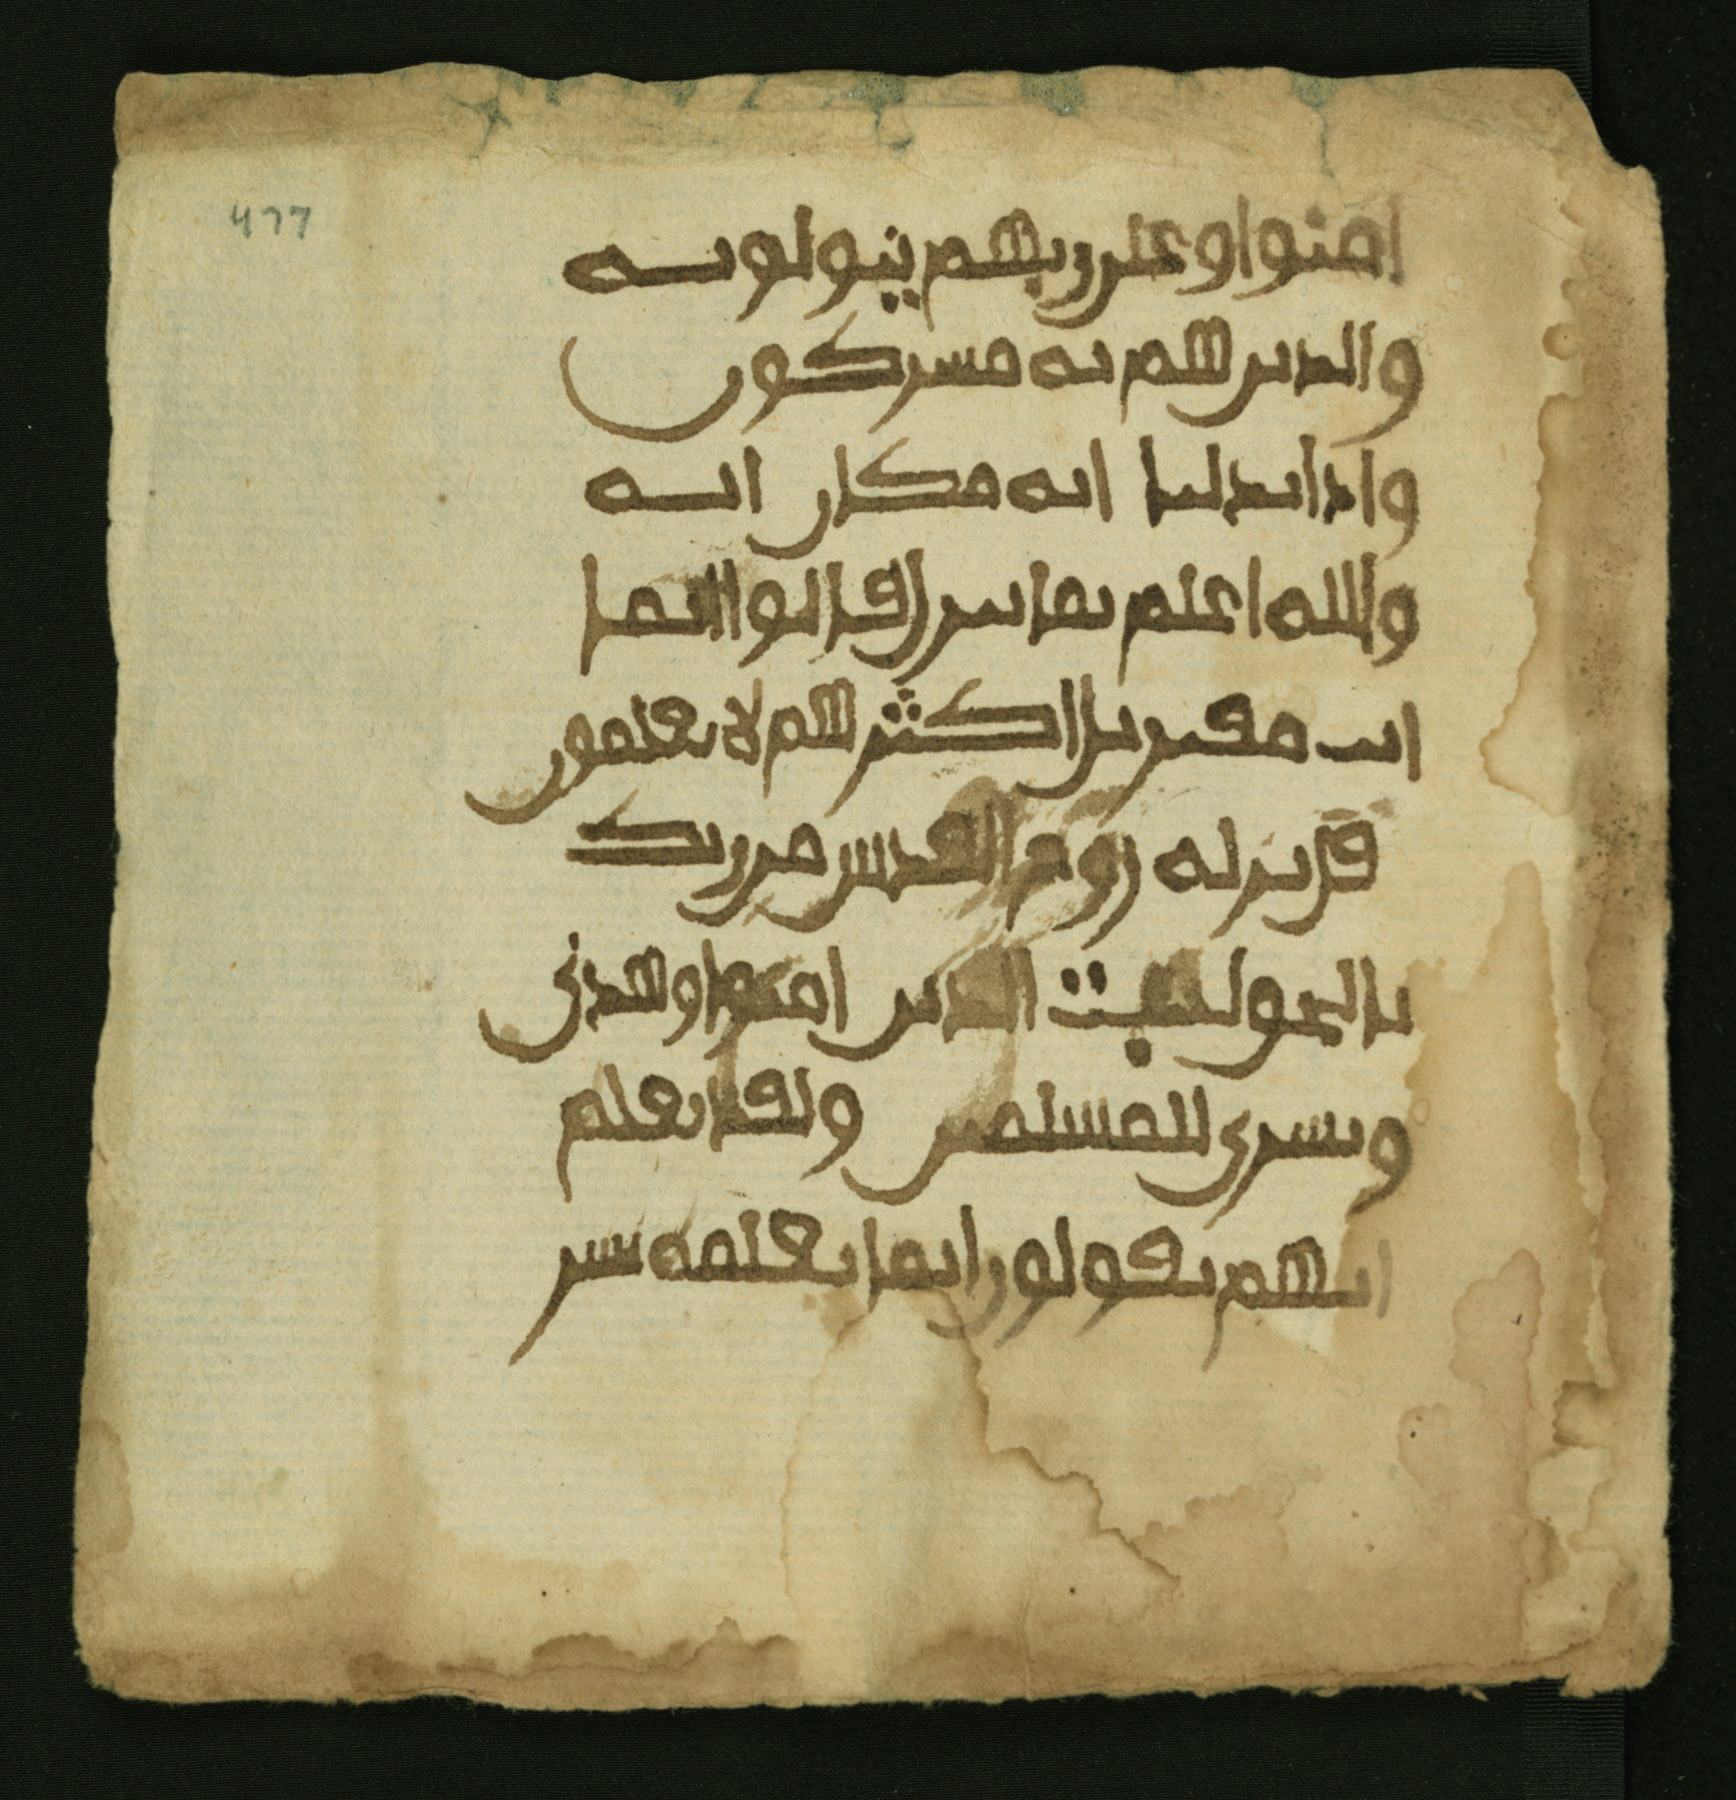 477
امنوا وعلى ربهم يتولونه
والذين هم به مشركون
واذا بدلنا ايه مكان ايه
والله اعلم بما ينزل قالوا انما
انت مفتر بل اكثرهم لا يعلمون
قل نزله روح القدس من ربك
بالحق ليثبت الذين امنوا وهدى
وبشرى للمسلمين ولقد نعلم
انهم يقولون انما يعلمه بشر